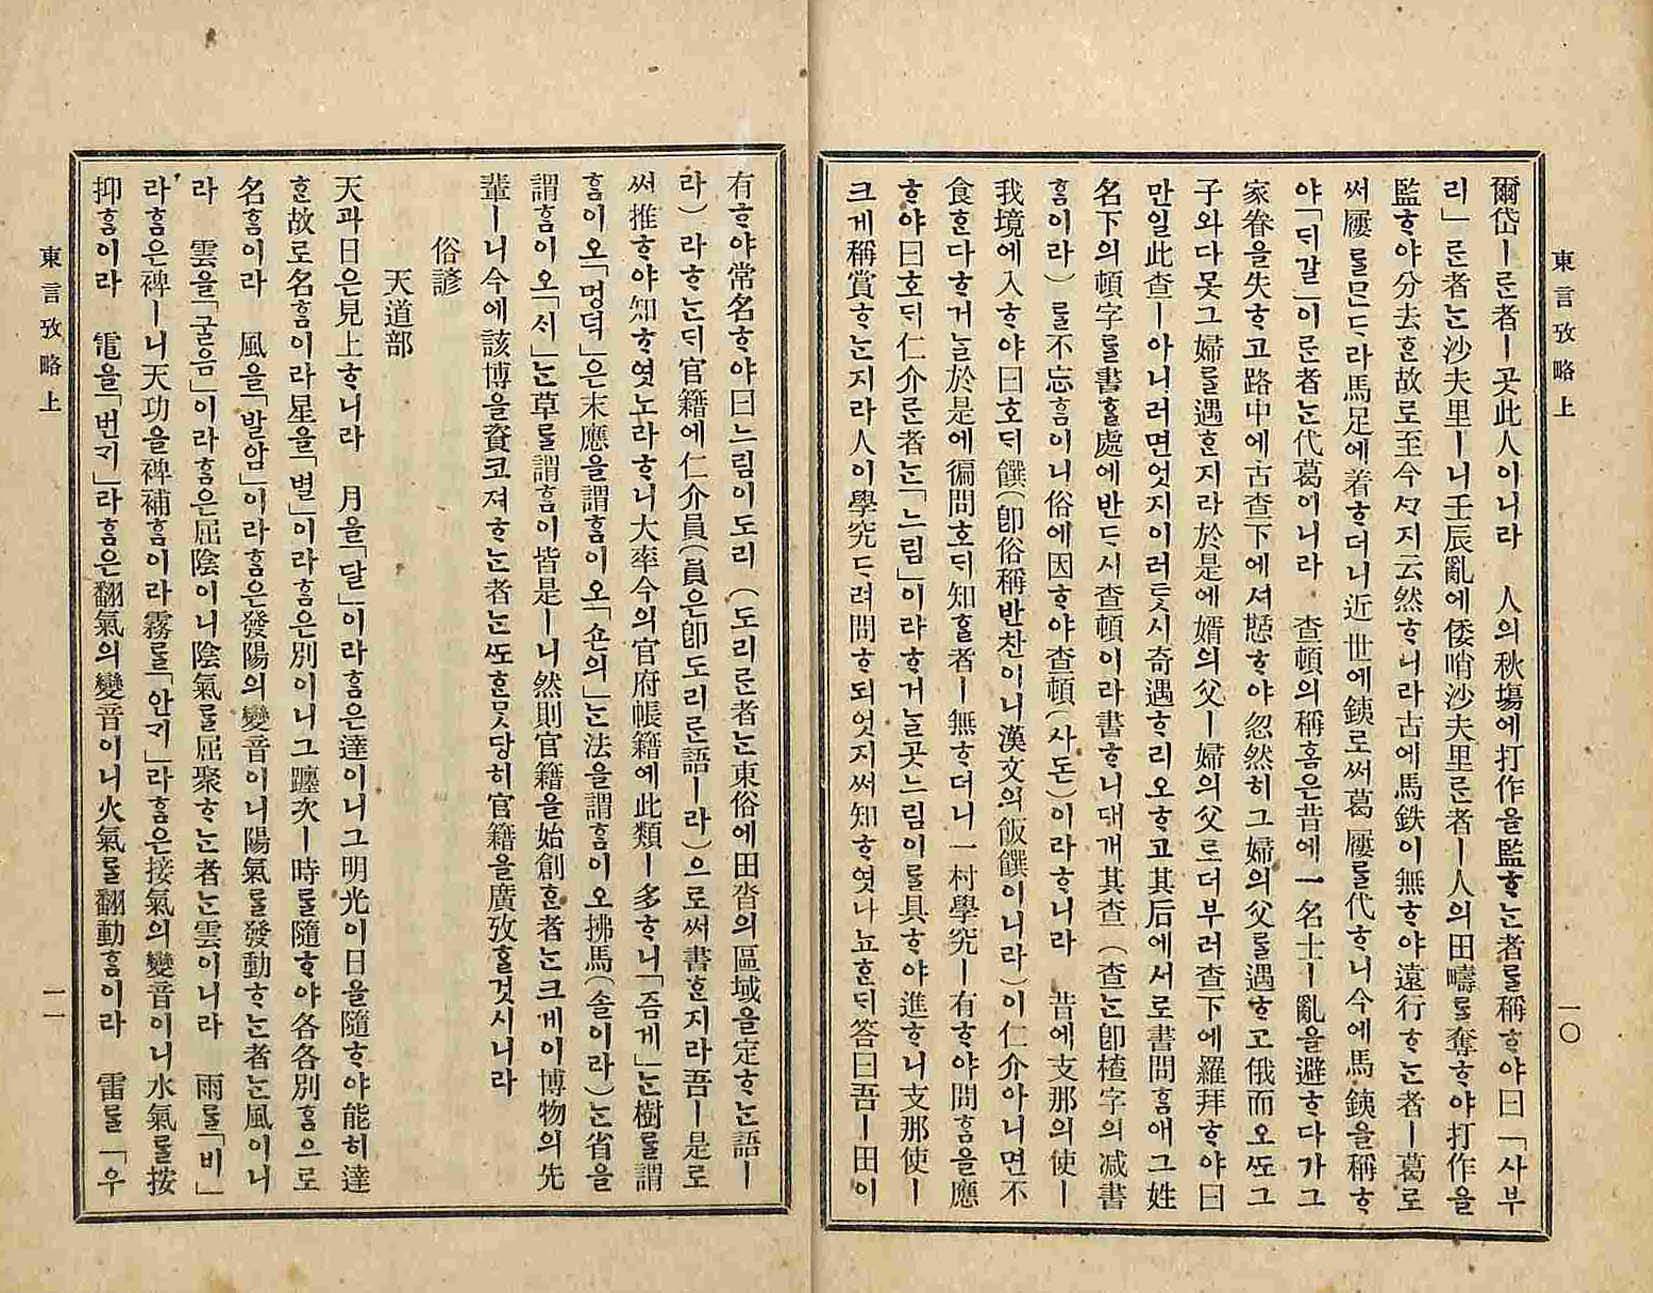 東言攷略上
一〇
爾岱ㅣ룬者ㅣ곳此人이니라 人의秋塲에打作을監ᄒᆞᄂᆞᆫ者ᄅᆞᆯ稱ᄒᆞ야曰「사부
리」룬者ᄂᆞᆫ沙夫里ㅣ니壬辰亂에倭哨沙夫里룬者ㅣ人의田疇ᄅᆞᆯ奪ᄒᆞ야打作을
監ᄒᆞ야分去ᄒᆞᆫ故로至今ᄭᆞ지云然ᄒᆞ니라古에馬鉄이無ᄒᆞ야遠行ᄒᆞᄂᆞᆫ者ㅣ葛로
써屨ᄅᆞᆯᄆᆞᆫᄃᆞ라馬足에着ᄒᆞ더니近世에銕로써葛屨ᄅᆞᆯ代ᄒᆞ니今에馬銕을稱ᄒᆞ
야「ᄃᆡ갈」이룬者ᄂᆞᆫ代葛이니라 査頓의稱홈은昔에一名士ㅣ亂을避ᄒᆞ다가그
家眷을失ᄒᆞ고路中에古査下에셔憇ᄒᆞ야忽然히그婦의父ᄅᆞᆯ遇ᄒᆞ고俄而오ᄯᅩ그
子와다못그婦ᄅᆞᆯ遇ᄒᆞᆫ지라於是에婿의父ㅣ婦의父로더부러査下에羅拜ᄒᆞ야曰
만일此査ㅣ아니러면엇지이러틋시奇遇ᄒᆞ리오ᄒᆞ고其后에서로書問ᄒᆞᆷ애그姓
名下의頓字ᄅᆞᆯ書ᄒᆞᆯ處에반ᄃᆞ시査頓이라書ᄒᆞ니대개其査（査ᄂᆞᆫ卽楂字의減書
ᄒᆞᆷ이라）ᄅᆞᆯ不忘ᄒᆞᆷ이니俗에因ᄒᆞ야査頓（사돈）이라ᄒᆞ니라 昔에支那의使ㅣ
我境에入ᄒᆞ야曰호ᄃᆡ饌（卽俗稱반찬이니漢文의飯饌이니라）이仁介아니면不
食ᄒᆞᆫ다ᄒᆞ거ᄂᆞᆯ於是에徧問호ᄃᆡ知ᄒᆞᆯ者ㅣ無ᄒᆞ더니一村學究ㅣ有ᄒᆞ야問ᄒᆞᆷ을應
ᄒᆞ야曰호ᄃᆡ仁介룬者ᄂᆞᆫ「느림」이라ᄒᆞ거ᄂᆞᆯ곳느림이ᄅᆞᆯ具ᄒᆞ야進ᄒᆞ니支那使ㅣ
크게稱賞ᄒᆞᄂᆞᆫ지라人이學究ᄃᆞ려問ᄒᆞ되엇지써知ᄒᆞ엿나뇨ᄒᆞᆫᄃᆡ答曰吾ㅣ田이
有ᄒᆞ야常名ᄒᆞ야曰느림이도리（도리룬者ᄂᆞᆫ東俗에田沓의區域을定ᄒᆞᄂᆞᆫ語ㅣ
라）라ᄒᆞᄂᆞᆫᄃᆡ官籍에仁介員（員은卽도리룬語ㅣ라）으로써書ᄒᆞᆫ지라吾ㅣ是로
써推ᄒᆞ야知ᄒᆞ엿노라ᄒᆞ니大率今의官府帳籍에此類ㅣ多ᄒᆞ니「즘게」ᄂᆞᆫ樹ᄅᆞᆯ謂
ᄒᆞᆷ이오「멍덕」은末應을謂ᄒᆞᆷ이오「숀의」ᄂᆞᆫ法을謂ᄒᆞᆷ이오拂馬（솔이라）ᄂᆞᆫ省을
謂ᄒᆞᆷ이오「시」ᄂᆞᆫ草ᄅᆞᆯ謂ᄒᆞᆷ이皆是ㅣ니然則官籍을始創ᄒᆞᆫ者ᄂᆞᆫ크게이博物의先
輩ㅣ니今에該博을資코져ᄒᆞᄂᆞᆫ者ᄂᆞᆫᄯᅩᄒᆞᆫ맛당히官籍을廣攷ᄒᆞᆯ것시니라
俗諺
天道部
天과日은見上ᄒᆞ니라 月을「달」이라ᄒᆞᆷ은達이니그明光이日을隨ᄒᆞ야能히達
ᄒᆞᆫ故로名ᄒᆞᆷ이라星을「별」이라ᄒᆞᆷ은別이니그躔次ㅣ時ᄅᆞᆯ隨ᄒᆞ야各各別ᄒᆞᆷ으로
名ᄒᆞᆷ이라 風을「발암」이라ᄒᆞᆷ은發陽의變音이니陽氣ᄅᆞᆯ發動ᄒᆞᄂᆞᆫ者ᄂᆞᆫ風이니
라 雲을「굴음」이라ᄒᆞᆷ은屈陰이니陰氣ᄅᆞᆯ屈聚ᄒᆞᄂᆞᆫ者ᄂᆞᆫ雲이니라 雨ᄅᆞᆯ「비」
라ᄒᆞᆷ은裨ㅣ니天功을裨補ᄒᆞᆷ이라霧ᄅᆞᆯ「안ᄀᆡ」라ᄒᆞᆷ은接氣의變音이니水氣ᄅᆞᆯ按
抑ᄒᆞᆷ이라 電을「번ᄀᆡ」라ᄒᆞᆷ은翻氣의變音이니火氣ᄅᆞᆯ翻動ᄒᆞᆷ이라 雷ᄅᆞᆯ「우
東言攷略上
一一